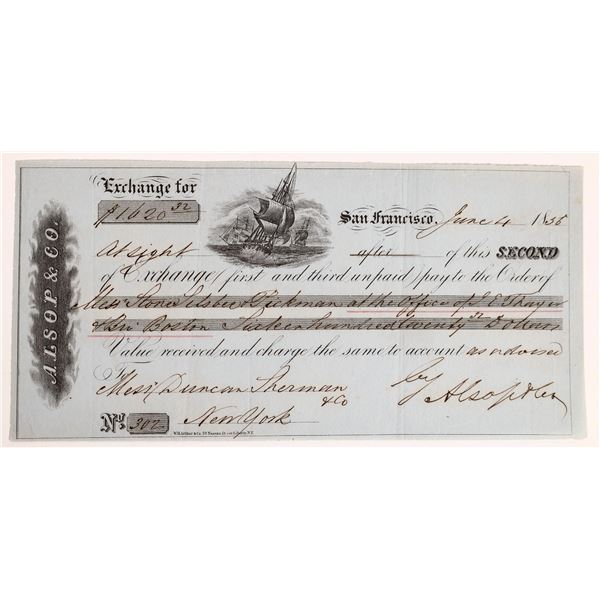 ALSOP & CO.
Exchange for
$1620 32
San Francisco, June 4 1856
At sight after of this SECOND
of Exchange (first and third unpaid) pay to the Order of
Mess Stone Silsbee & Pickman at the Office of J E Thayer
& Bro Boston Sixteen hundred twenty 32 Dollars
Value received and charge the same to account as advised
To
Mess Duncan Sherman & Co by Alsop & Co
No. 302 New York